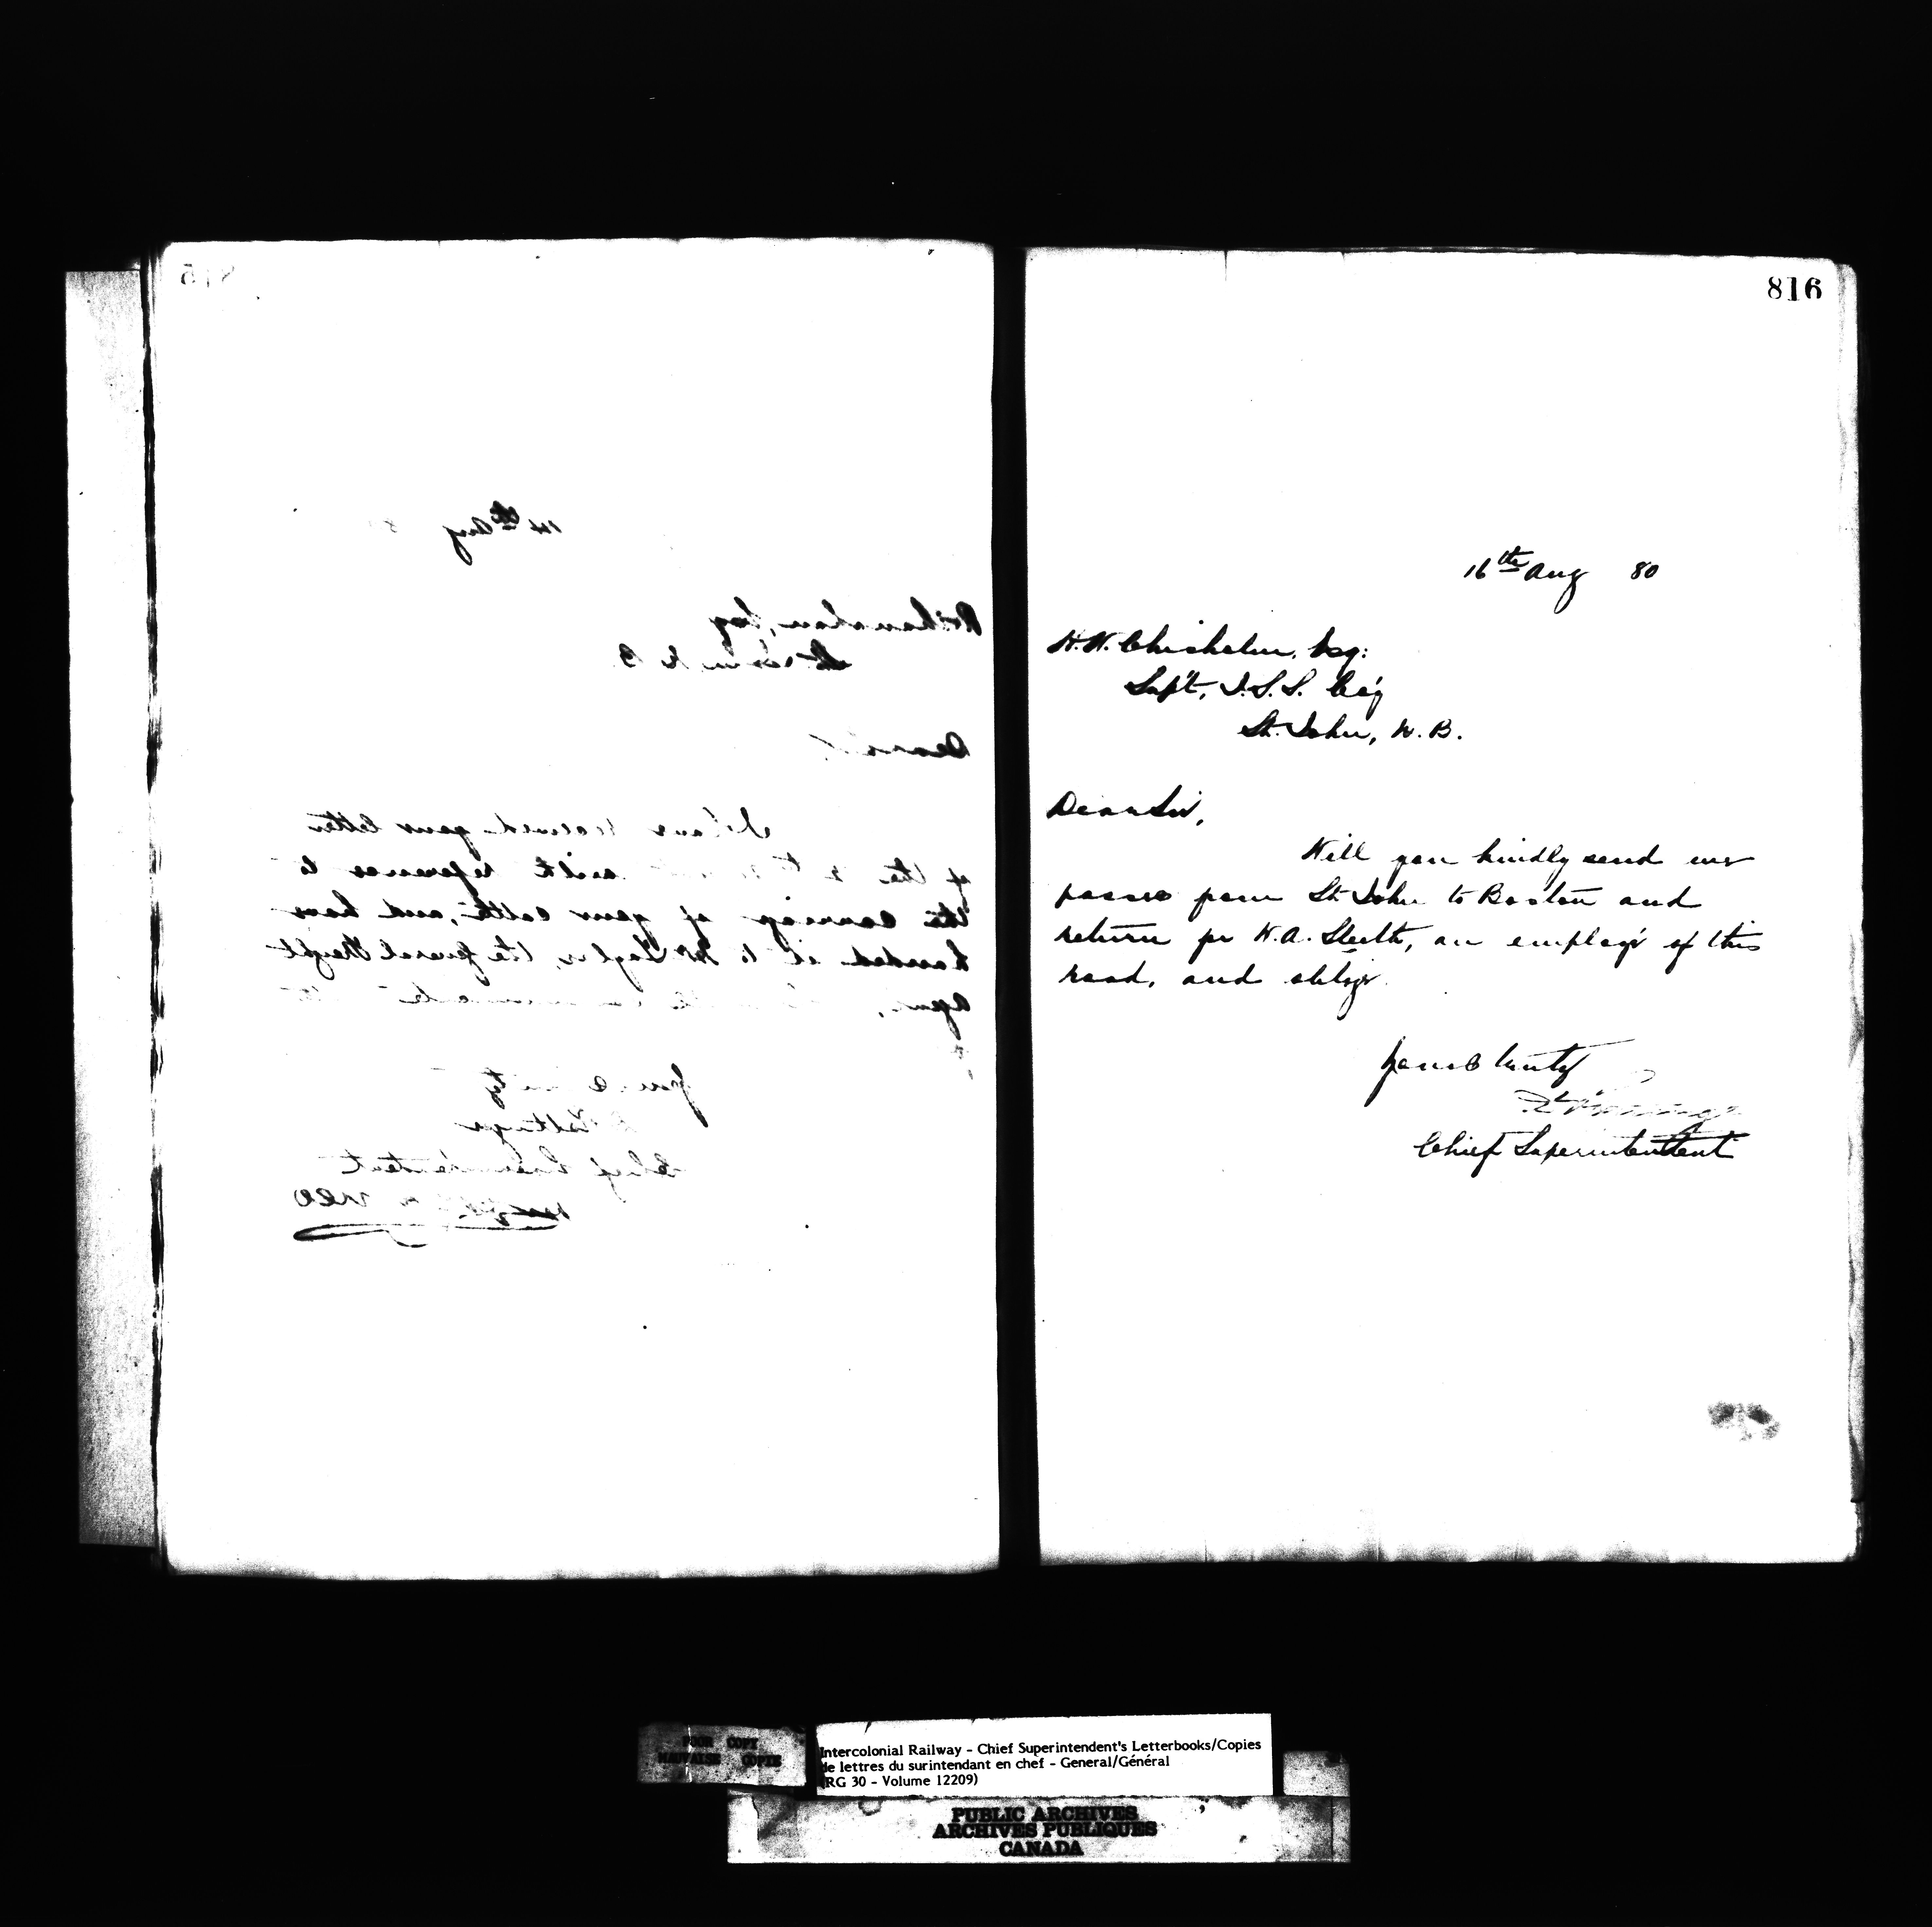 815
14th Aug
St. John N. B.
Dear Sir
I have received your letter
of the with reference to
the carriage of your cattle, and have
handed it to Mr Taylor, the General Freight
Agent,
Yours truly
Pottinger
Chief Superintendent
816
16th Aug 80
H. W. Chisholm, Esq:
Supt, I.S.S. Co'y
St. John, N. B.
Dear Sir,
Will you kindly send me
passes from St John to Boston and
return for W. A. Sleeth, an employé of this
road, and oblige.
Yours truly
Chief Superintendent
POOR COPY
MAUVAISE COPIE
Intercolonial Railway - Chief Superintendent's Letterbooks/Copies
de lettres du surintendant en chef - General/Général
(RG 30 - Volume 12209)
PUBLIC ARCHIVES
ARCHIVES PUBLIQUES
CANADA